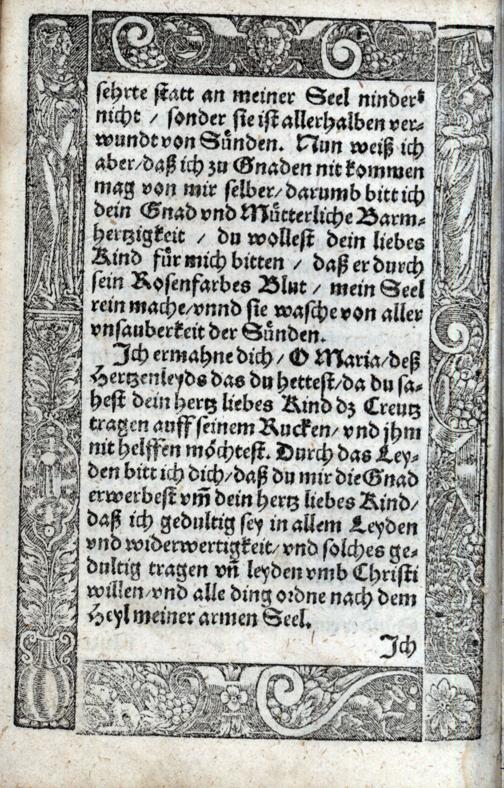 sehrte statt an meiner Seel ninders
nicht / sonder sie ist allerhalben ver⸗
wundt von Sünden. Nun weiß ich
aber / daß ich zu Gnaden nit kommen
mag von mir selber / darumb bitt ich
dein Gnad vnd Můtterliche Barm⸗
hertzigkeit / du wollest dein liebes
Kind für mich bitten / daß er durch
sein Rosenfarbes Blut / mein Seel
rein mache / vnnd sie wasche von aller
vnsauberkeit der Sünden.
Ich ermahne dich / O Maria / deß
Hertzenleyds das du hettest / da du sa⸗
hest dein hertz liebes Kind dz Creutz
tragen auff seinem Rucken / vnd jhm
nit helffen möchtest. Durch das Ley⸗
den bitt ich dich / daß du mir die Gnad
erwerbest vm̃ dein hertz liebes Kind /
daß ich gedultig sey in allem Leyden
vnd widerwertigkeit / vnd solches ge⸗
dultig tragen vñ leyden vmb Christi
willen / vnd alle ding ordne nach dem
Heyl meiner armen Seel.
Ich